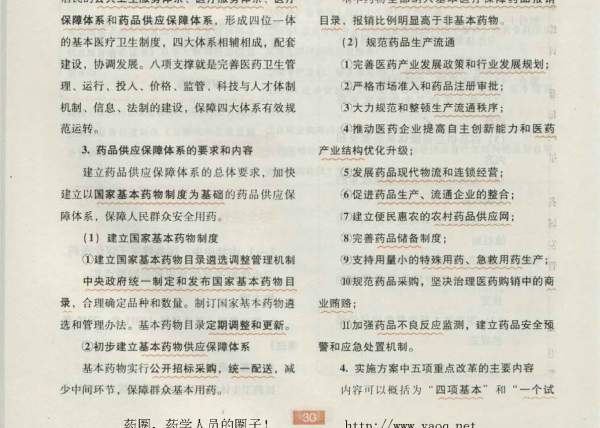 保障体系和药品供应保障体系，形成四位一体
的基本医疗卫生制度，四大体系相辅相成，配套
建设，协调发展。八项支撑就是完善医药卫生管
理、运行、投入、价格、监管、科技与人才体制
机制、信息、法制的建设，保障四大体系有效规
范运转。
3. 药品供应保障体系的要求和内容
建立药品供应保障体系的总体要求，加快
建立以国家基本药物制度为基础的药品供应保
障体系，保障人民群众安全用药。
（1）建立国家基本药物制度
①建立国家基本药物目录遴选调整管理机制
中央政府统一制定和发布国家基本药物目
录，合理确定品种和数量。制订国家基本药物遴
选和管理办法。基本药物目录定期调整和更新。
②初步建立基本药物供应保障体系
基本药物实行公开招标采购，统一配送，减
少中间环节，保障群众基本用药。
目录、报销比例明显高于非基本药物。
（2）规范药品生产流通
①完善医药产业发展政策和行业发展规划；
②严格市场准入和药品注册审批；
③大力规范和整顿生产流通秩序；
④推动医药企业提高自主创新能力和医药
产业结构优化升级；
⑤发展药品现代物流和连锁经营；
⑥促进药品生产、流通企业的整合；
⑦建立便民惠农的农村药品供应网；
⑧完善药品储备制度；
⑨支持用量小的特殊用药、急救用药生产；
⑩规范药品采购，坚决治理医药购销中的商
业贿赂；
⑪加强药品不良反应监测，建立药品安全预
警和应急处置机制。
4. 实施方案中五项重点改革的主要内容
内容可以概括为“四项基本”和“一个试
30
药圈，药学人员的圈子！ http://www.yaoq.net